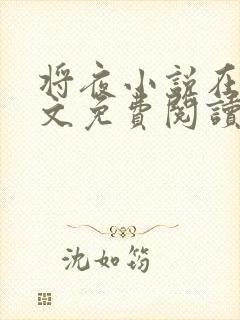 将夜小说在
文免费阅读
沈如筠